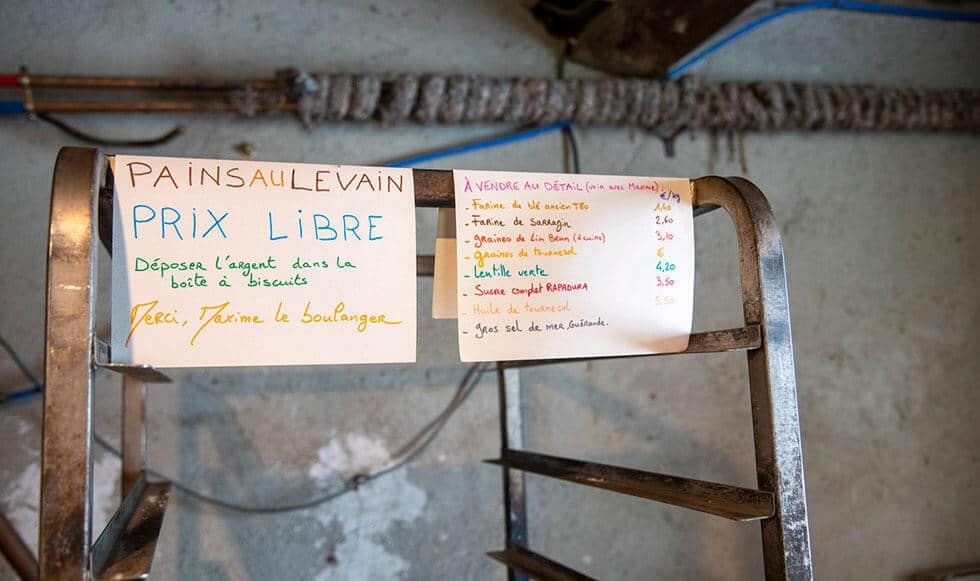 PAINS AU LEVAIN
PRIX LIBRE
Déposer l'argent dans la
boîte à biscuits
Merci, Maxime le boulanger
À VENDRE AU DÉTAIL (voir avec Maxime) :
€/kg
- Farine de blé ancien T80 1,60
- Farine de Sarrasin 2,60
- graines de Lin Brun 3,10
- graines de tournesol 6
- Lentille verte 4,20
- Sucre complet RAPADURA 3,50
- Huile de tournesol 5,50
- gros sel de mer, Guérande.